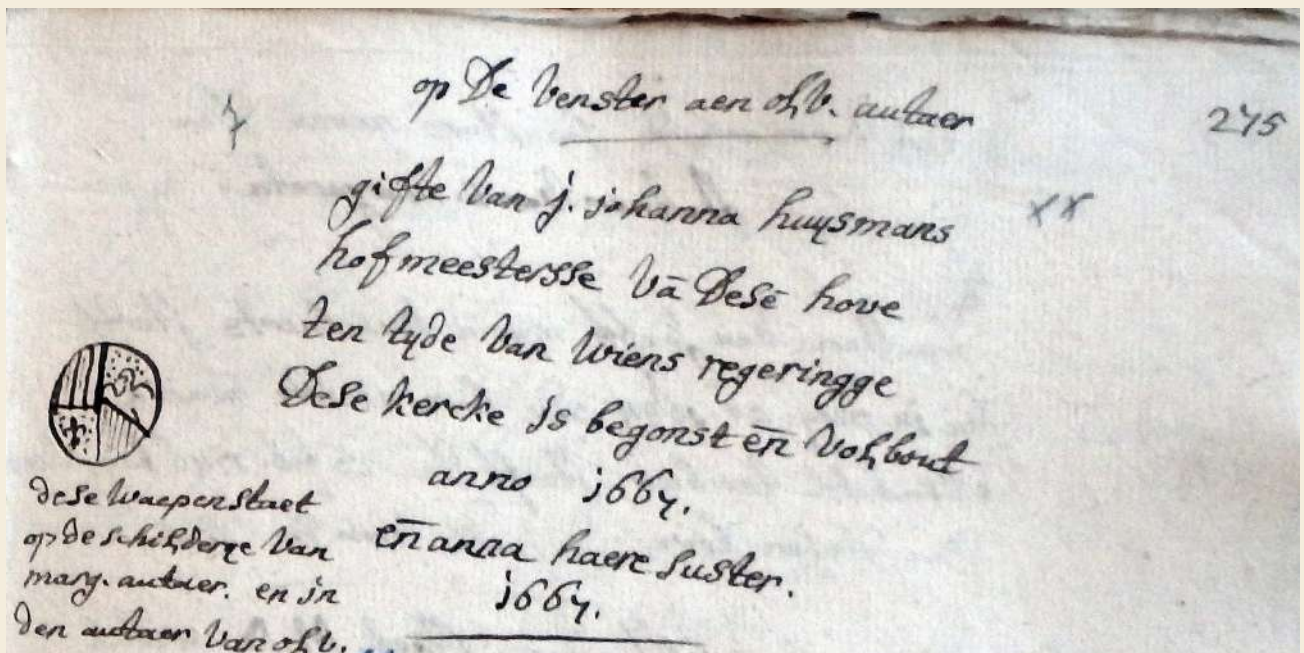 op De venster aen olv. autaer
275
gifte van j. johanna huysmans
xx
hofmeestersse vā Desē hove
ten tyde van wiens regeringge
Dese kercke js begonst eñ volbout
anno j667.
eñ anna haere suster.
j667.
dese waepen staet
op de schilderye van
marg. autaer. en jn
den autaer van olv.